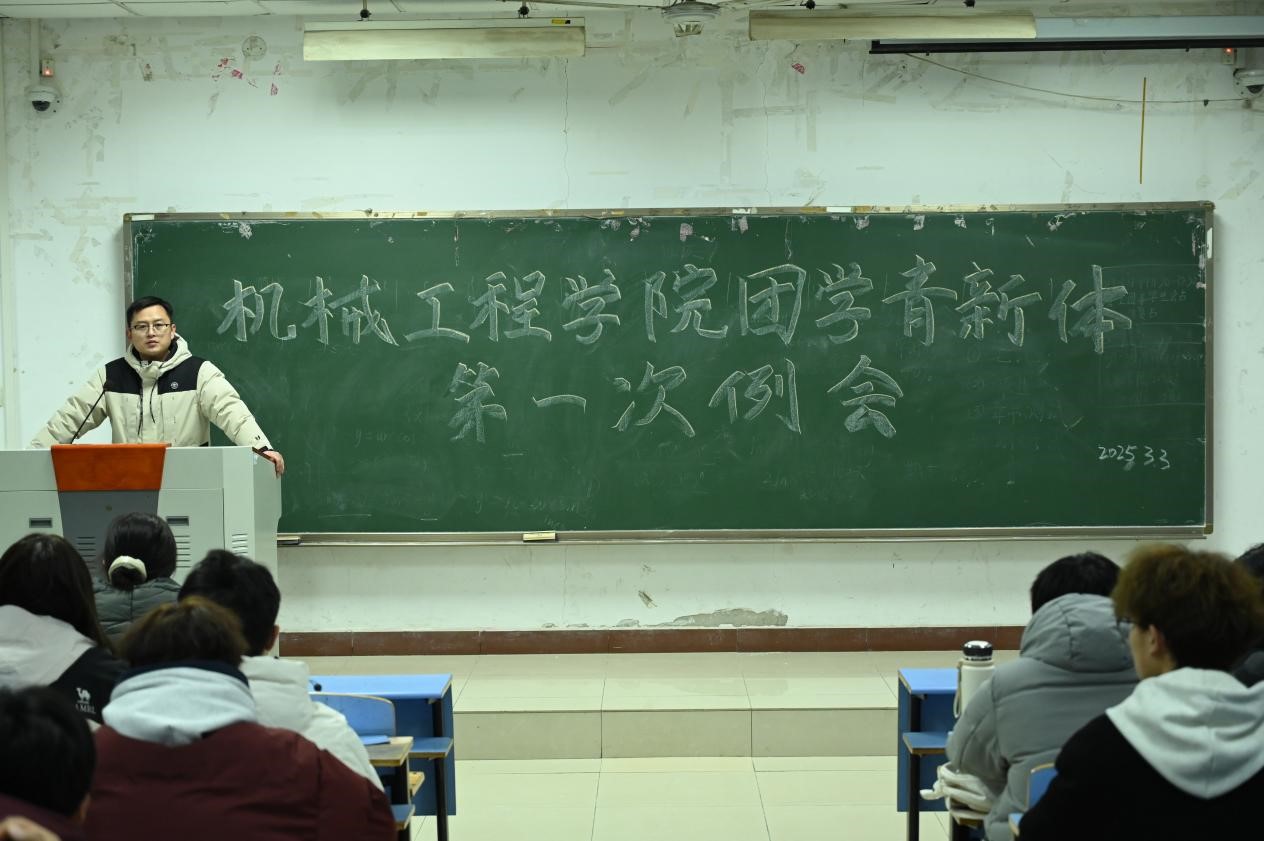 机械工程学院团学青新体
第一次例会
2025.3.3